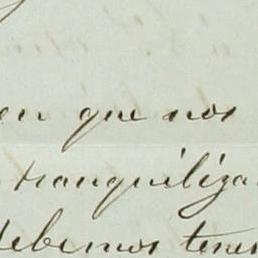 en que nos
tranquiliza
debemos tener